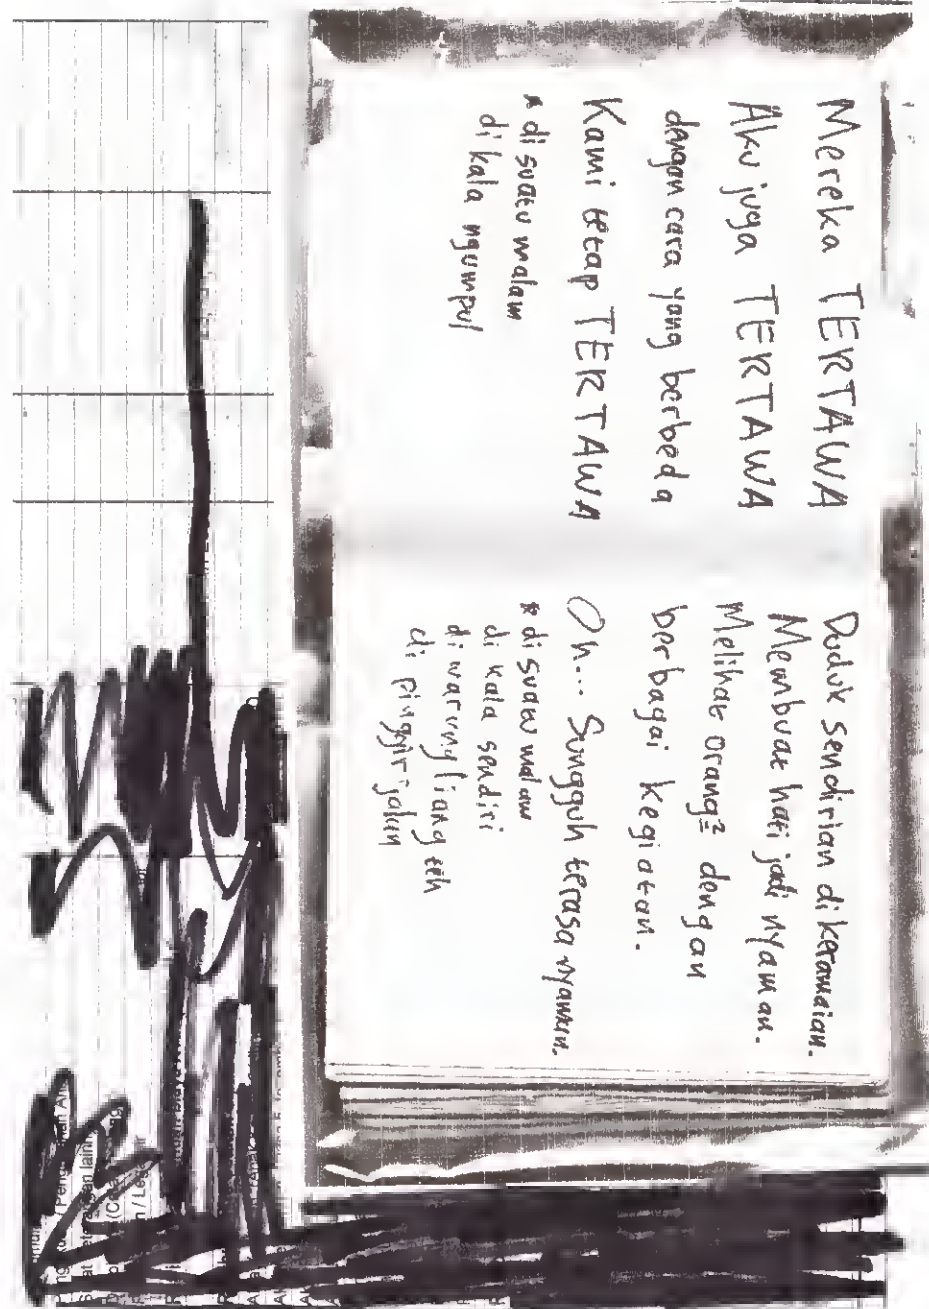 Mereka TERTAWA
Aku juga TERTAWA
dengan cara yang berbeda
Kami tetap TERTAWA
* di suatu malam
di kala ngumpul
Duduk sendirian dikeramaian.
Membuat hati jadi nyaman.
Melihat orang² dengan
berbagai kegiatan.
Oh... Sungguh terasa nyaman.
* di suatu malam
di kala sendiri
di warung liang teh
di pinggir jalan